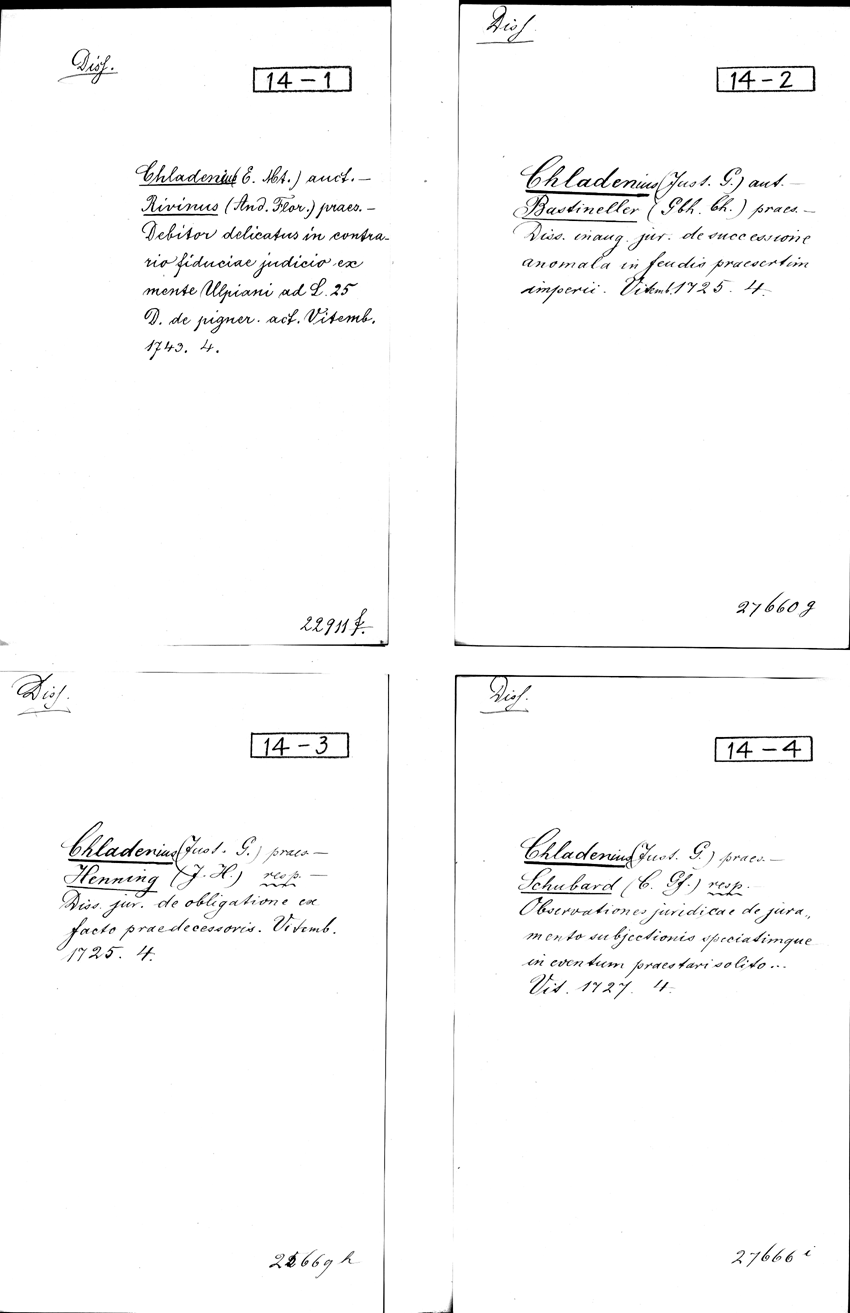 Diss.
14-1
Chladenius (E. Mt.) auct. —
Rivinus (And. Flor.) praes. —
Debitor delicatus in contra-
rio fiduciae judicio ex
mente Ulpiani ad L. 25
D. de pigner. act. Vitemb.
1743. 4.
22911 f.
Diss.
14-2
Chladenius (Just. G.) aut. —
Bastineller (Gbh. Ch.) praes. —
Diss. inaug. jur. de successione
anomala in feudis praesertim
imperii. Vitemb. 1725. 4.
27660 g
Diss.
14-3
Chladenius (Just. G.) praes. —
Henning (J. H.) resp. —
Diss. jur. de obligatione ex
facto praedecessoris. Vitemb.
1725. 4.
h
Diss.
14-4
Chladenius (Just. G.) praes. —
Schubard (C. Gf.) resp. —
Observationes juridicae de jura-
mento subjectionis speciatimque
in eventum praestari solito...
Vit. 1727. 4.
27666 i